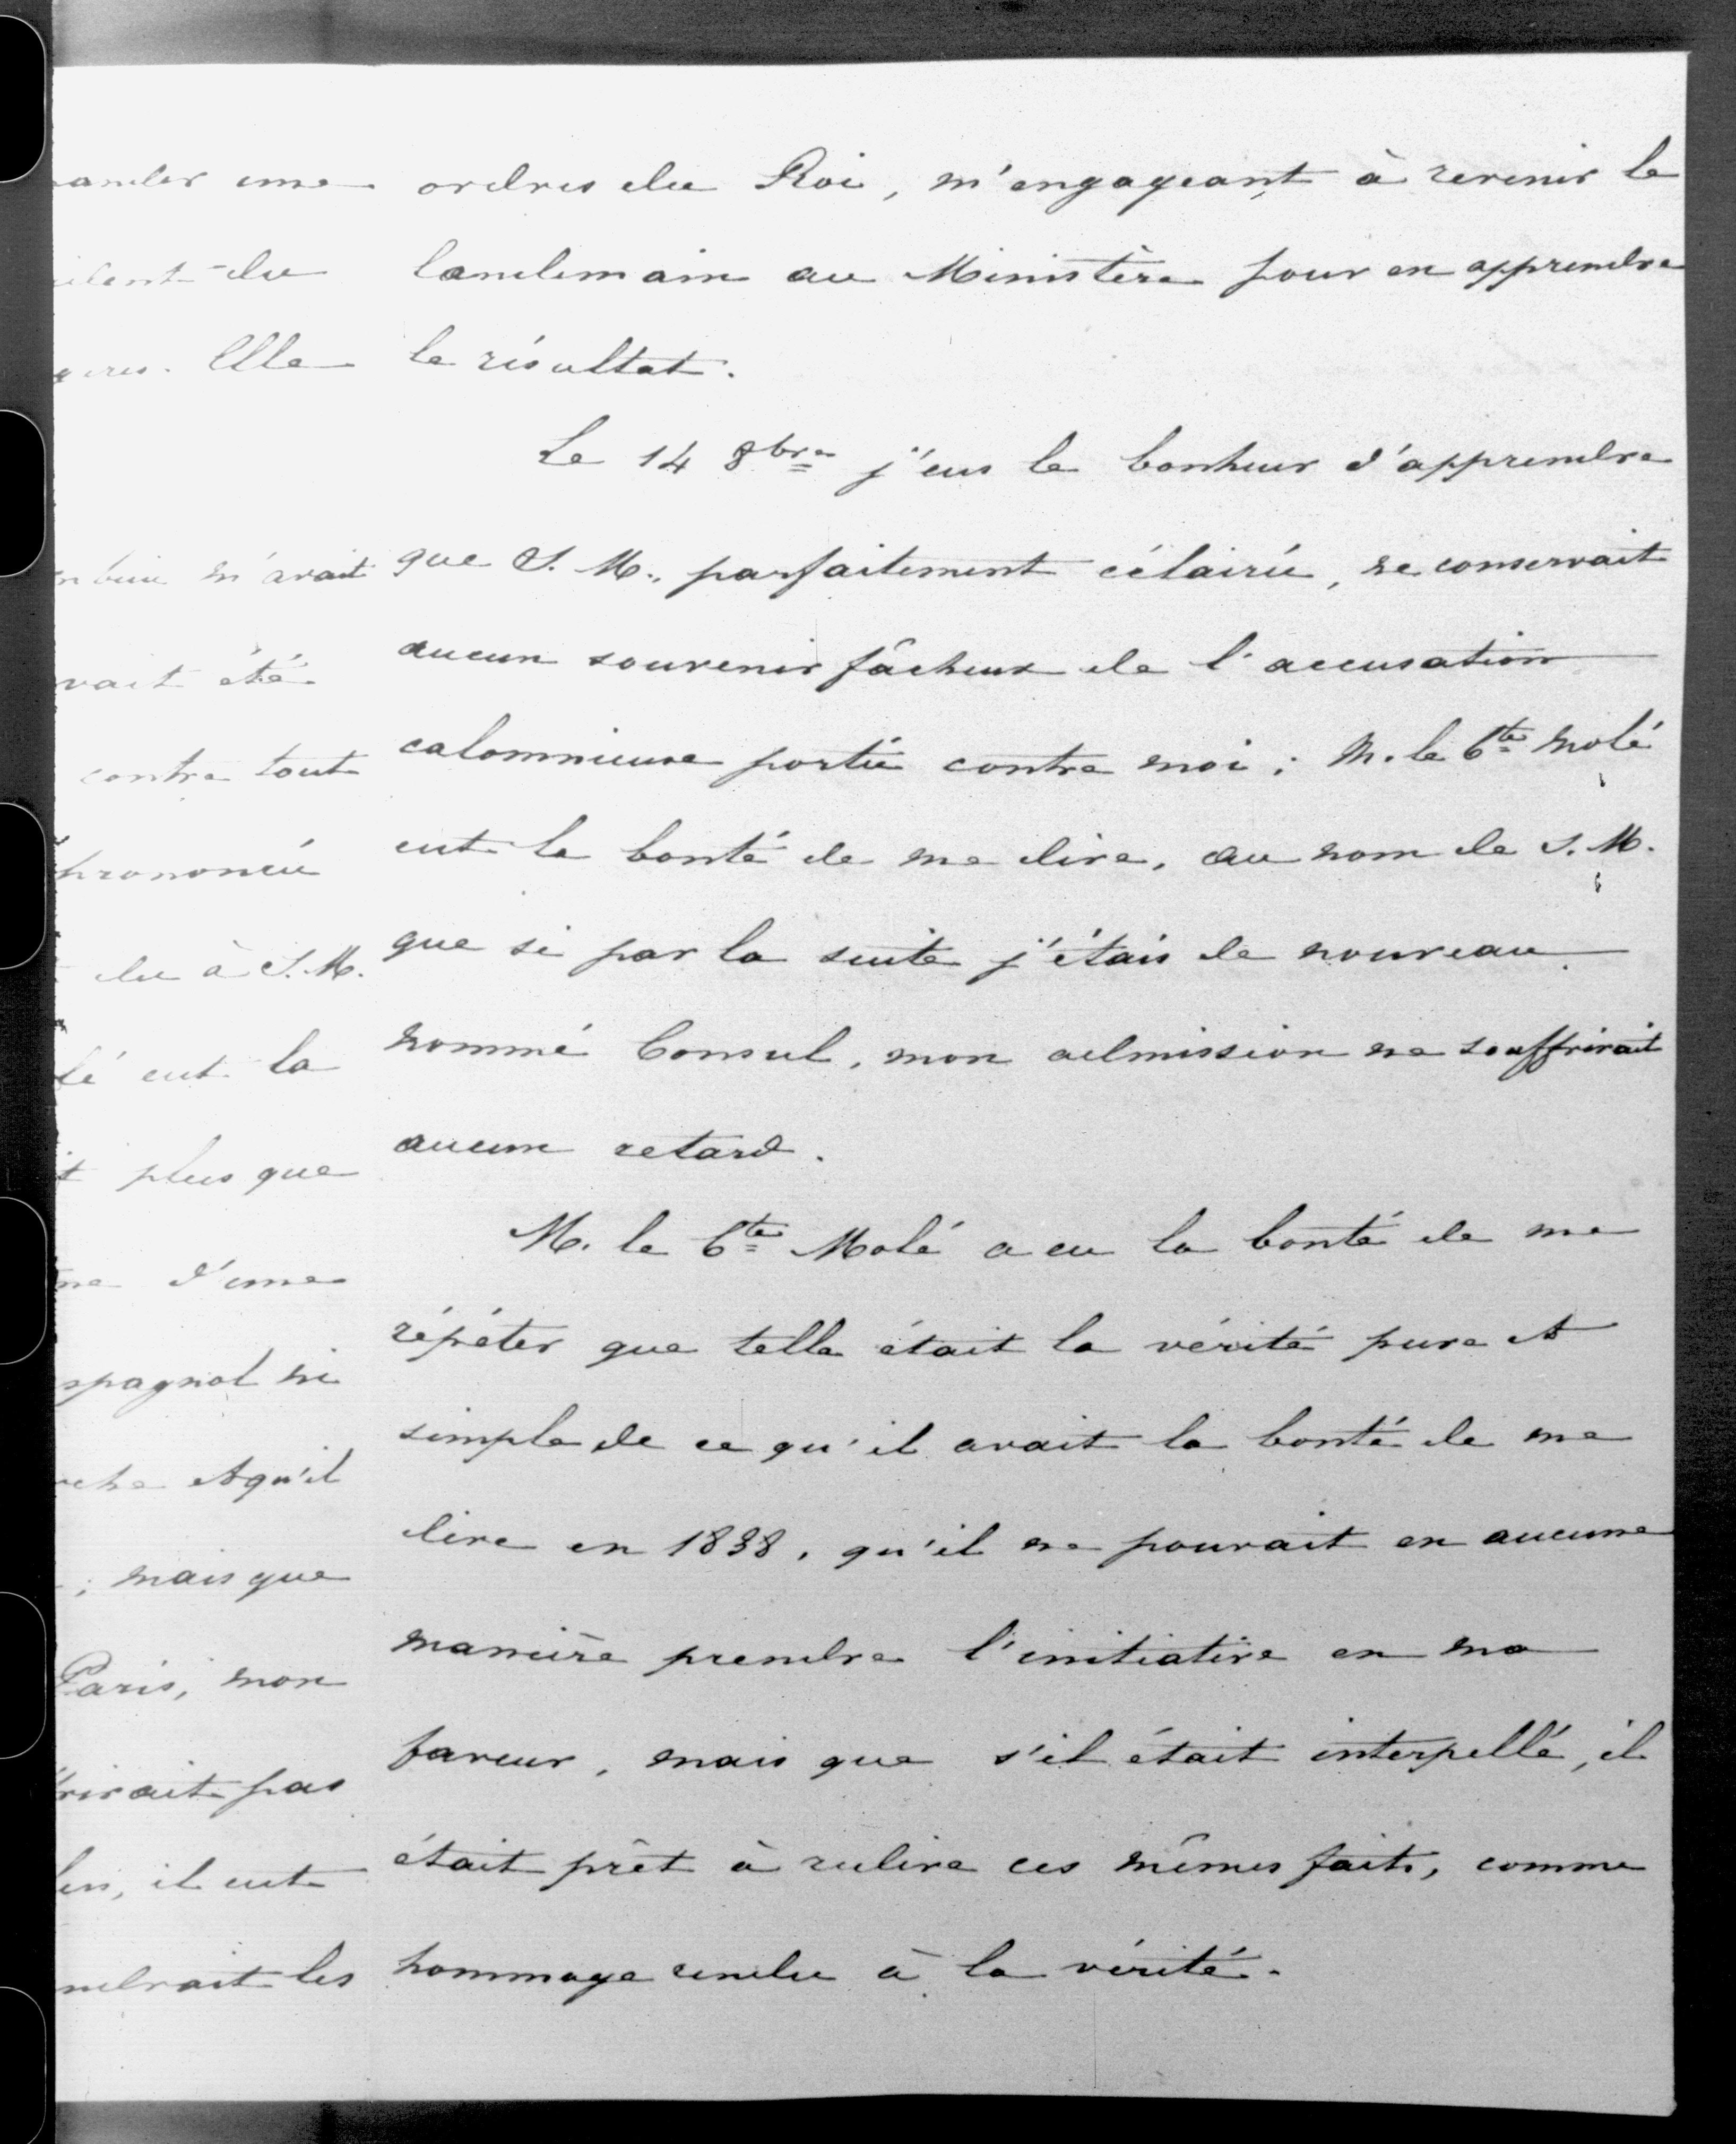 ander une
ident du
gères. Elle
n bien m'avait
vait été
contre tout
prononcée
du à S. M.
lé eut la
t plus que
ne d'une
spagnol ni
rche et qu'il
; mais que
Paris, mon
rirait pas
len, il eut
ndrait les
ordres du Roi, m'engageant à revenir le
landemain au Ministère pour en apprendre
le résultat.
Le 14 8bre j'eus le bonheur d'apprendre
que S. M., parfaitement éclairée, ne conservait
aucun souvenir fâcheux de l'accusation
calomnieuse portée contre moi ; M. le Cte Molé
eut la bonté de me dire, au nom de S. M.
que si par la suite j'étais de nouveau
nommé Consul, mon admission ne souffrirait
aucun retard.
M. le Cte Molé a eu la bonté de me
répéter que telle était la vérité pure et
simple de ce qu'il avait la bonté de me
dire en 1838, qu'il ne pouvait en aucune
manière prendre l'initiative en ma
faveur, mais que s'il était interpellé, il
était prêt à redire ces mêmes faits, comme
hommage rendu à la vérité.